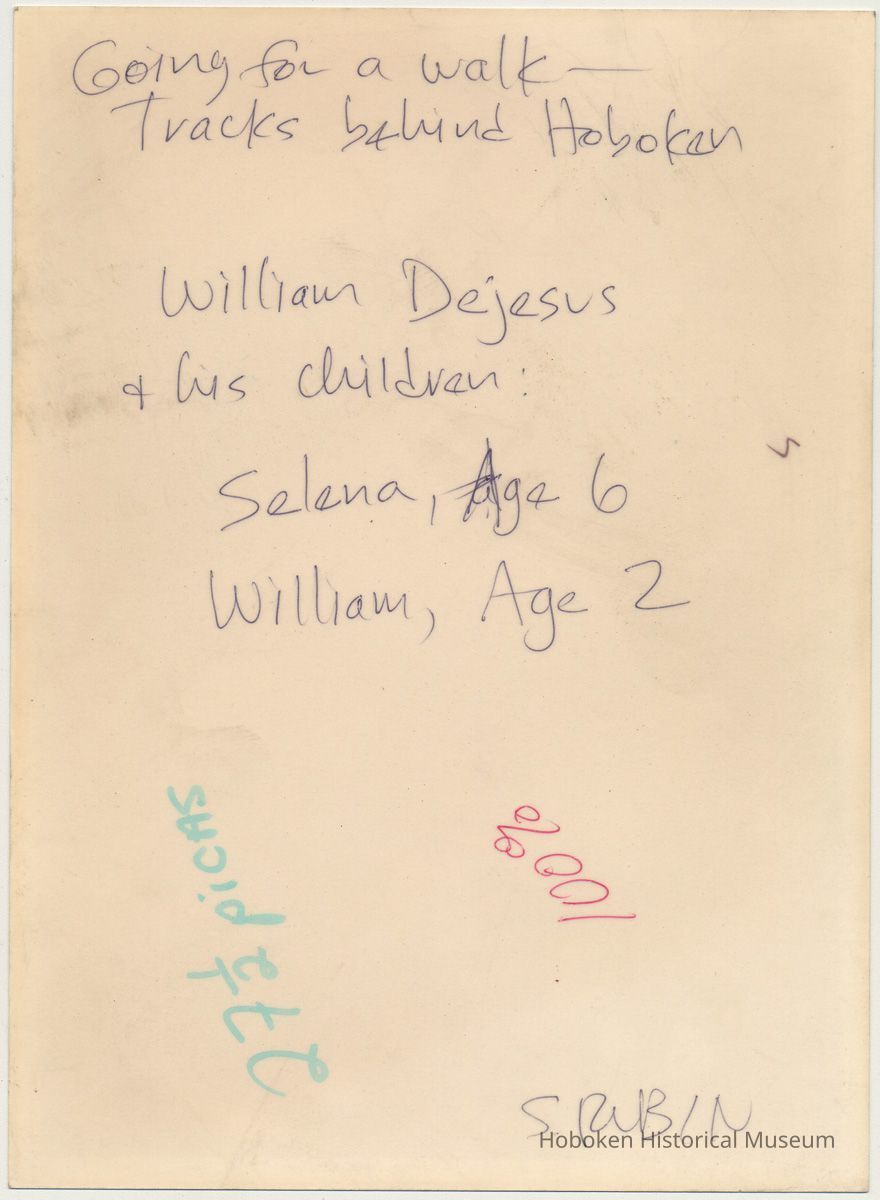 Going for a walk —
Tracks behind Hoboken
William Dejesus
& his children:
Selena, Age 6
William, Age 2
27 1/2 picas
100%
S RUBIN
Hoboken Historical Museum